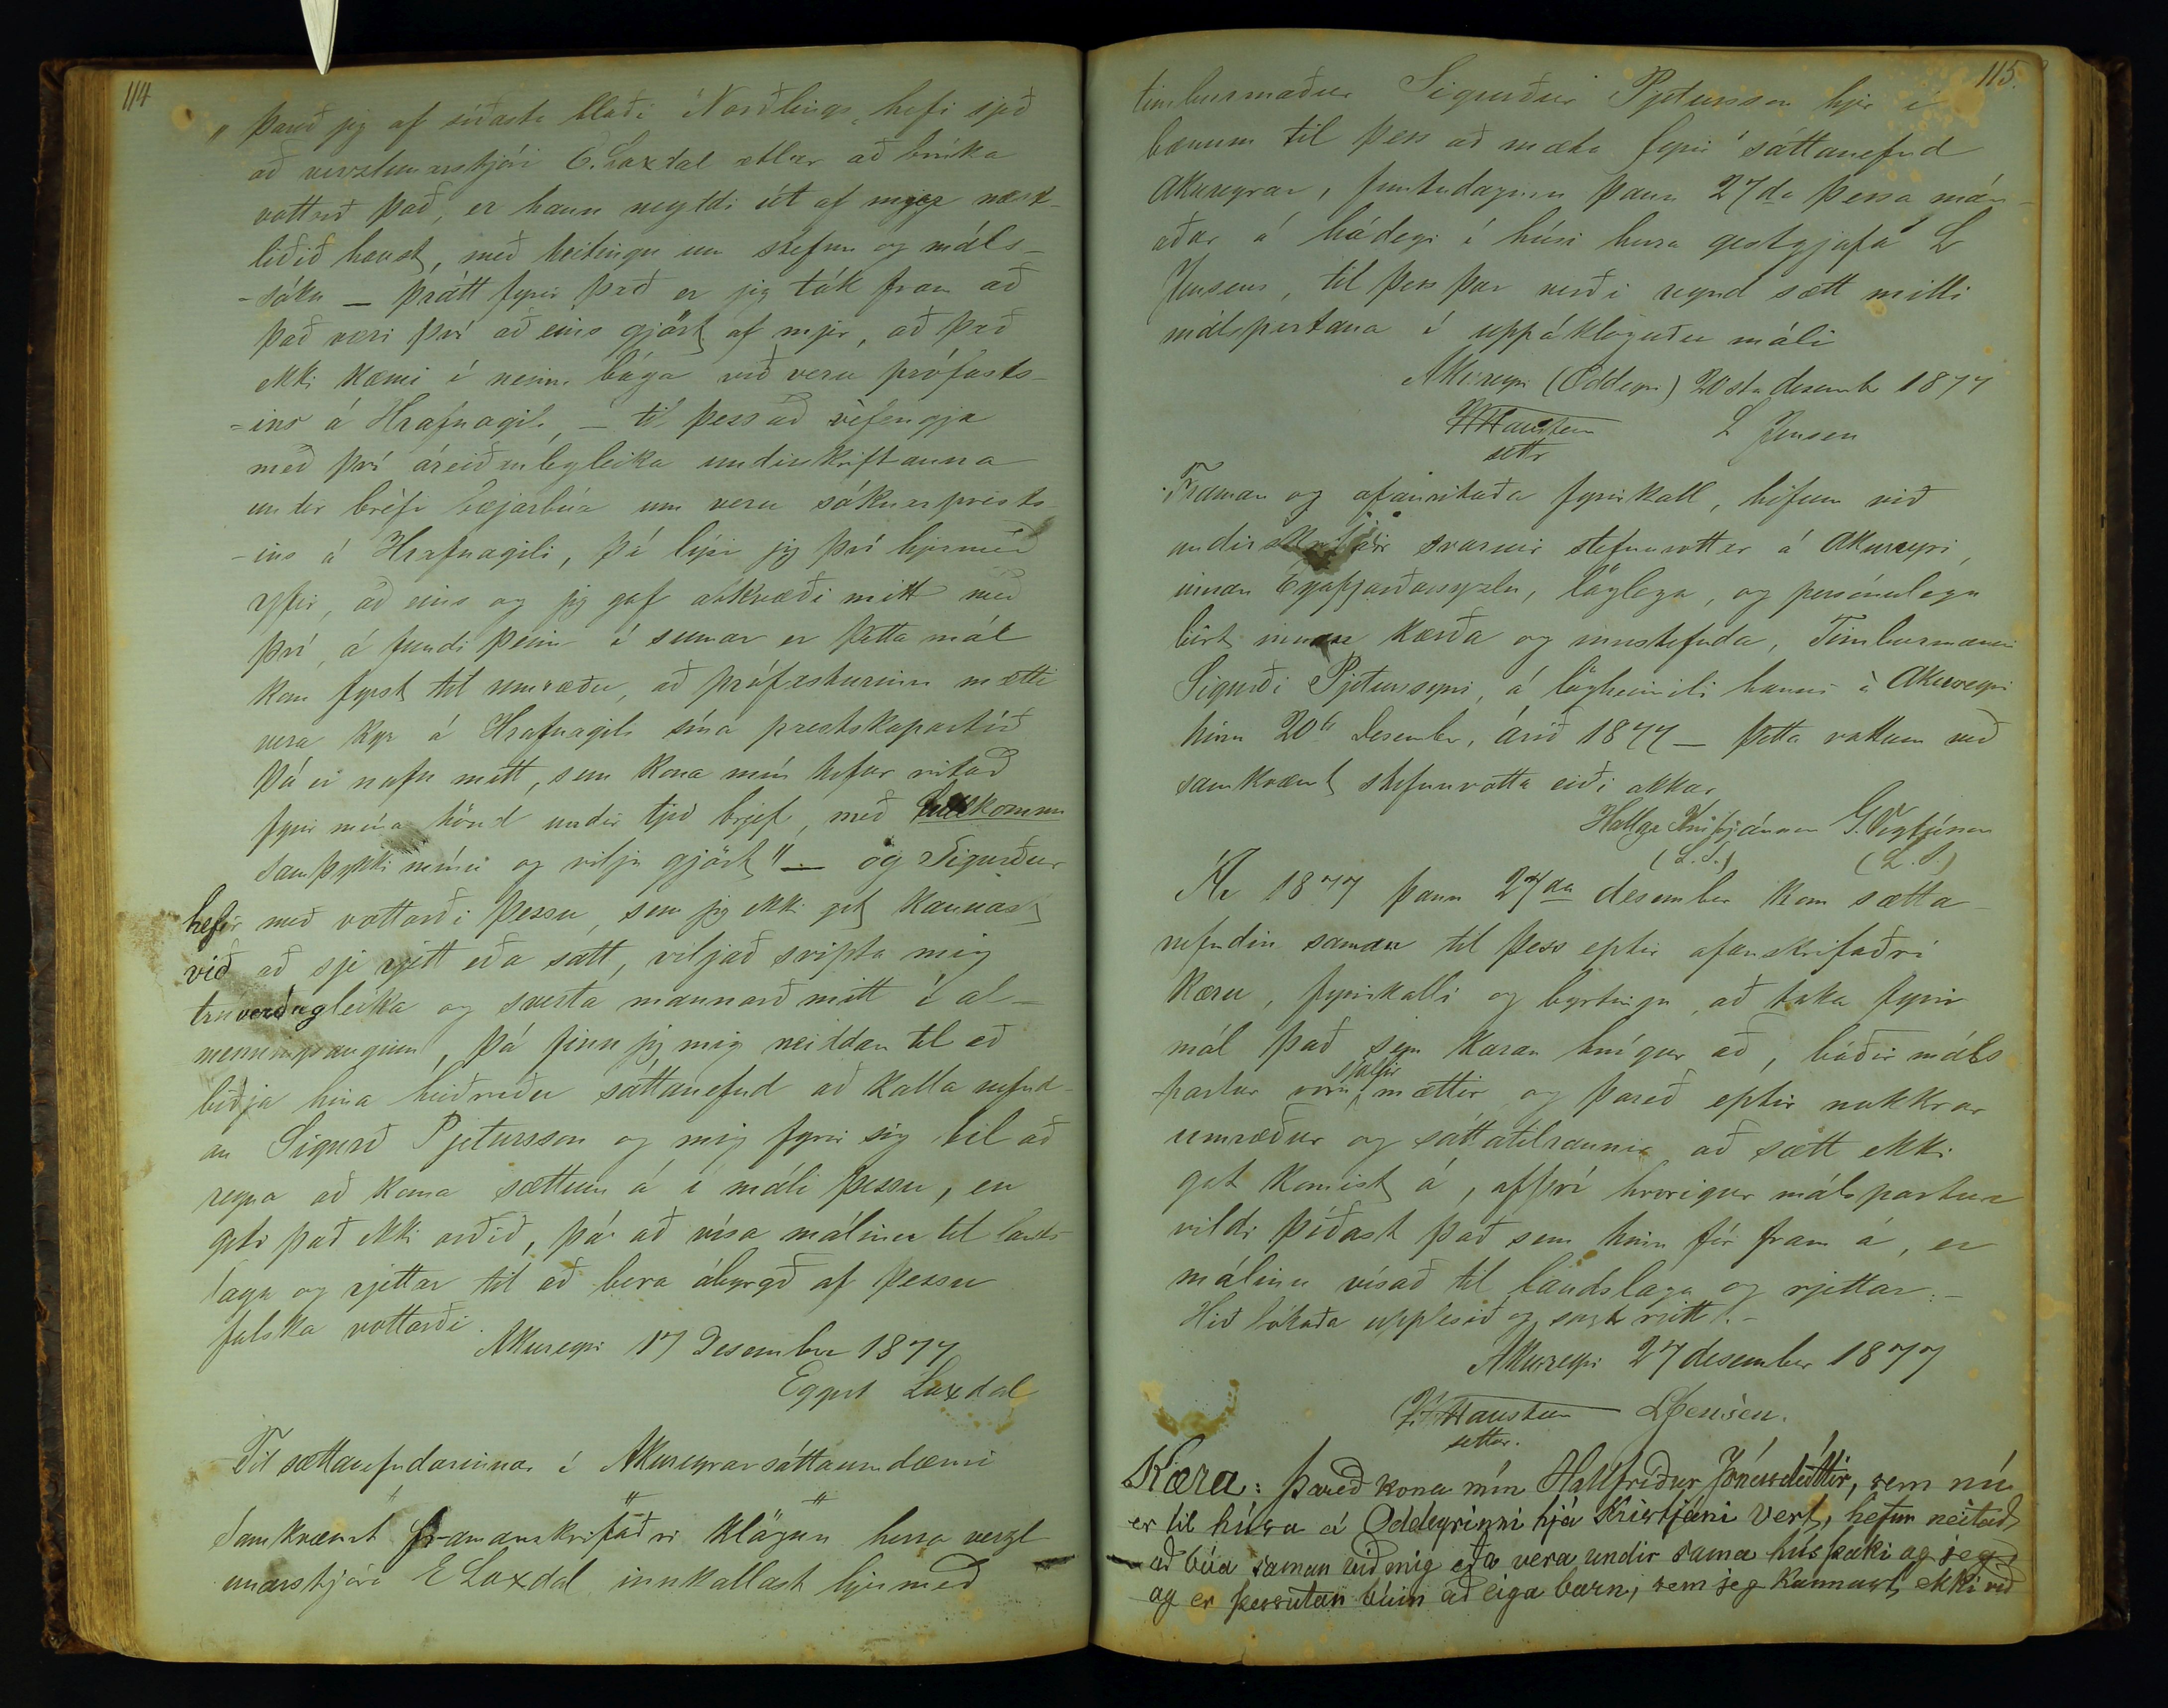 114
„ Þareð jeg af síðasta blaði Norðlings, hefi sjeð
að verzlunarstjóri E. Laxdal ætlar að brúka
vottorð það, er hann neyddi út af mjer næst-
liðið haust, með heitingu um stefnu og máls-
-sókn — þrátt fyrir það er jeg tók fram að
það væri því að eins gjört af mjer, að það
ekki kæmi í neinn bága við veru prófasts-
-ins á Hrafnagili, — til þess að vèfengja
með því áreiðanlegleika undirskriftanna
undir bréfi bæjarbúa um veru sóknarprests-
-ins á Hrafnagili, þá lýsi jeg því hjermeð
yfir, að eins og jeg gaf atkvæði mitt með
því, á fundi þeim í sumar er þetta mál
kom fyrst til umræðu, að prófasturinn mætti
vera kyr á Hrafnagili sína prestskapartíð
Þá er nafn mitt, sem kona mín hefur ritað
fyrir mína hönd undir tjeð brjef, með fullkomnu
samþykki mínu og vilja gjört" — og Sigurður
hefir með vottorði þessu, sem jeg ekki get kannast
við að sje rjett eða satt, viljað svipta mig
trúverðugleika og sverta mannorð mitt í al-
menningsaugum, þá finn jeg mig neiddan til að
biðja hina heiðruðu sáttanefnd að kalla nefnd-
an Sigurð Pjetursson og mig fyrir sig til að
reyna að koma sættum á í máli þessu, en
geti það ekki orðið, þá að vísa málinu til lands-
laga og rjettar til að bera ábyrgð af þessu
falska vottorði.
Akureyri 17 Desember 1877
Eggert Laxdal
Til sættanefndarinnar í Akureyrarsáttaumdæmi
Samkvæmt framanskrifaðri klögun herra verzl
unarstjóra E Laxdal innkallast hjermeð
115.
timburmaður Sigurður Pjetursson hjer í
bænum til þess að mæta fyrir sáttanefnd
Akureyrar, fimtudaginn þann 27da þessa mán-
aðar á hádegi í húsi herra gestgjafa L
Jensens, til þess þar verði reynd sætt milli
málspartana í uppáklöguðu máli
Akureyri (Oddeyri) 20sta desember 1877
L Jensen
settr
Framan og ofanritaða fyrirkall, höfum við
undirskrifaðir svarnir stefnuvottar á Akureyri,
innan Eyjafjarðarsyzlu, löglega, og persónulega
birt innan kærða og innstefnda, Timburmanni
Sigurði Pjeturssyni, á lögheimili hanns à Akureyri
hinn 20ta Desember, árið 1877 — þetta vottum við
samkvæmt stefnuvotta eiði okkar
Hallgr Kristjánsson G. Vigfússon
(L. S.) (L. S.)
Ár 1877 þann 27da desember kom sætta-
nefndin saman til þess eptir ofanskrifaðri
kæru, fyrirkalli og byrtingu, að taka fyrir
mál það sem kæran hnígur að, báðir máls
partar voru sjálfir mættir og þareð eptir nokkrar
umræður og sáttatilraunir að sætt ekki
gat komist á, afþví hvorigur málspartur
vildi þíðast það sem hinn fór fram á, er
málinu vísað til landslaga og rjettar. -
Hið bókaða upplesið og sagt rjett. -
Akureyri 27 desember 1877
LJensen.
settur.
Kæra: Þareð kona mín Hallfríður Jónsdóttir, sem nú
er til húsa á Oddeyrinni hjá Kristjáni Vert, hefur neitað
að búa saman við mig eða vera undir sama hús þaki og jeg
og er þessutan búin að eiga barn, sem jeg kannast ekki við